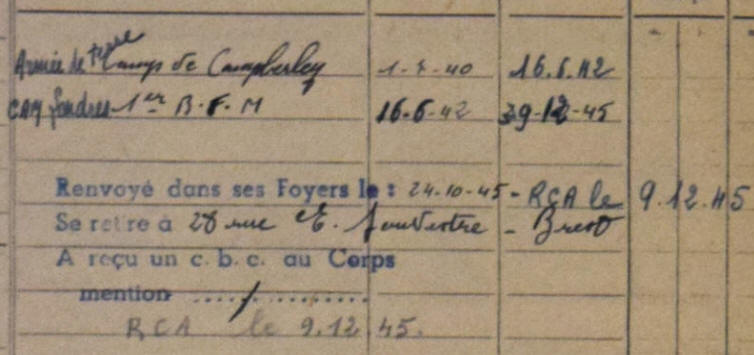 Armée de terre Camp de Camberley 1-7-40 16.6.42
CAM Londres 1er B.F.M 16.6-42 39-12-45
Renvoyé dans ses Foyers le : 24-10-45 - RCA le 9.12.45
Se retire à 28 rue E. Souvestre - Brest
A reçu un c. b. c. au Corps
mention ..... / .....
RCA le 9.12 45.